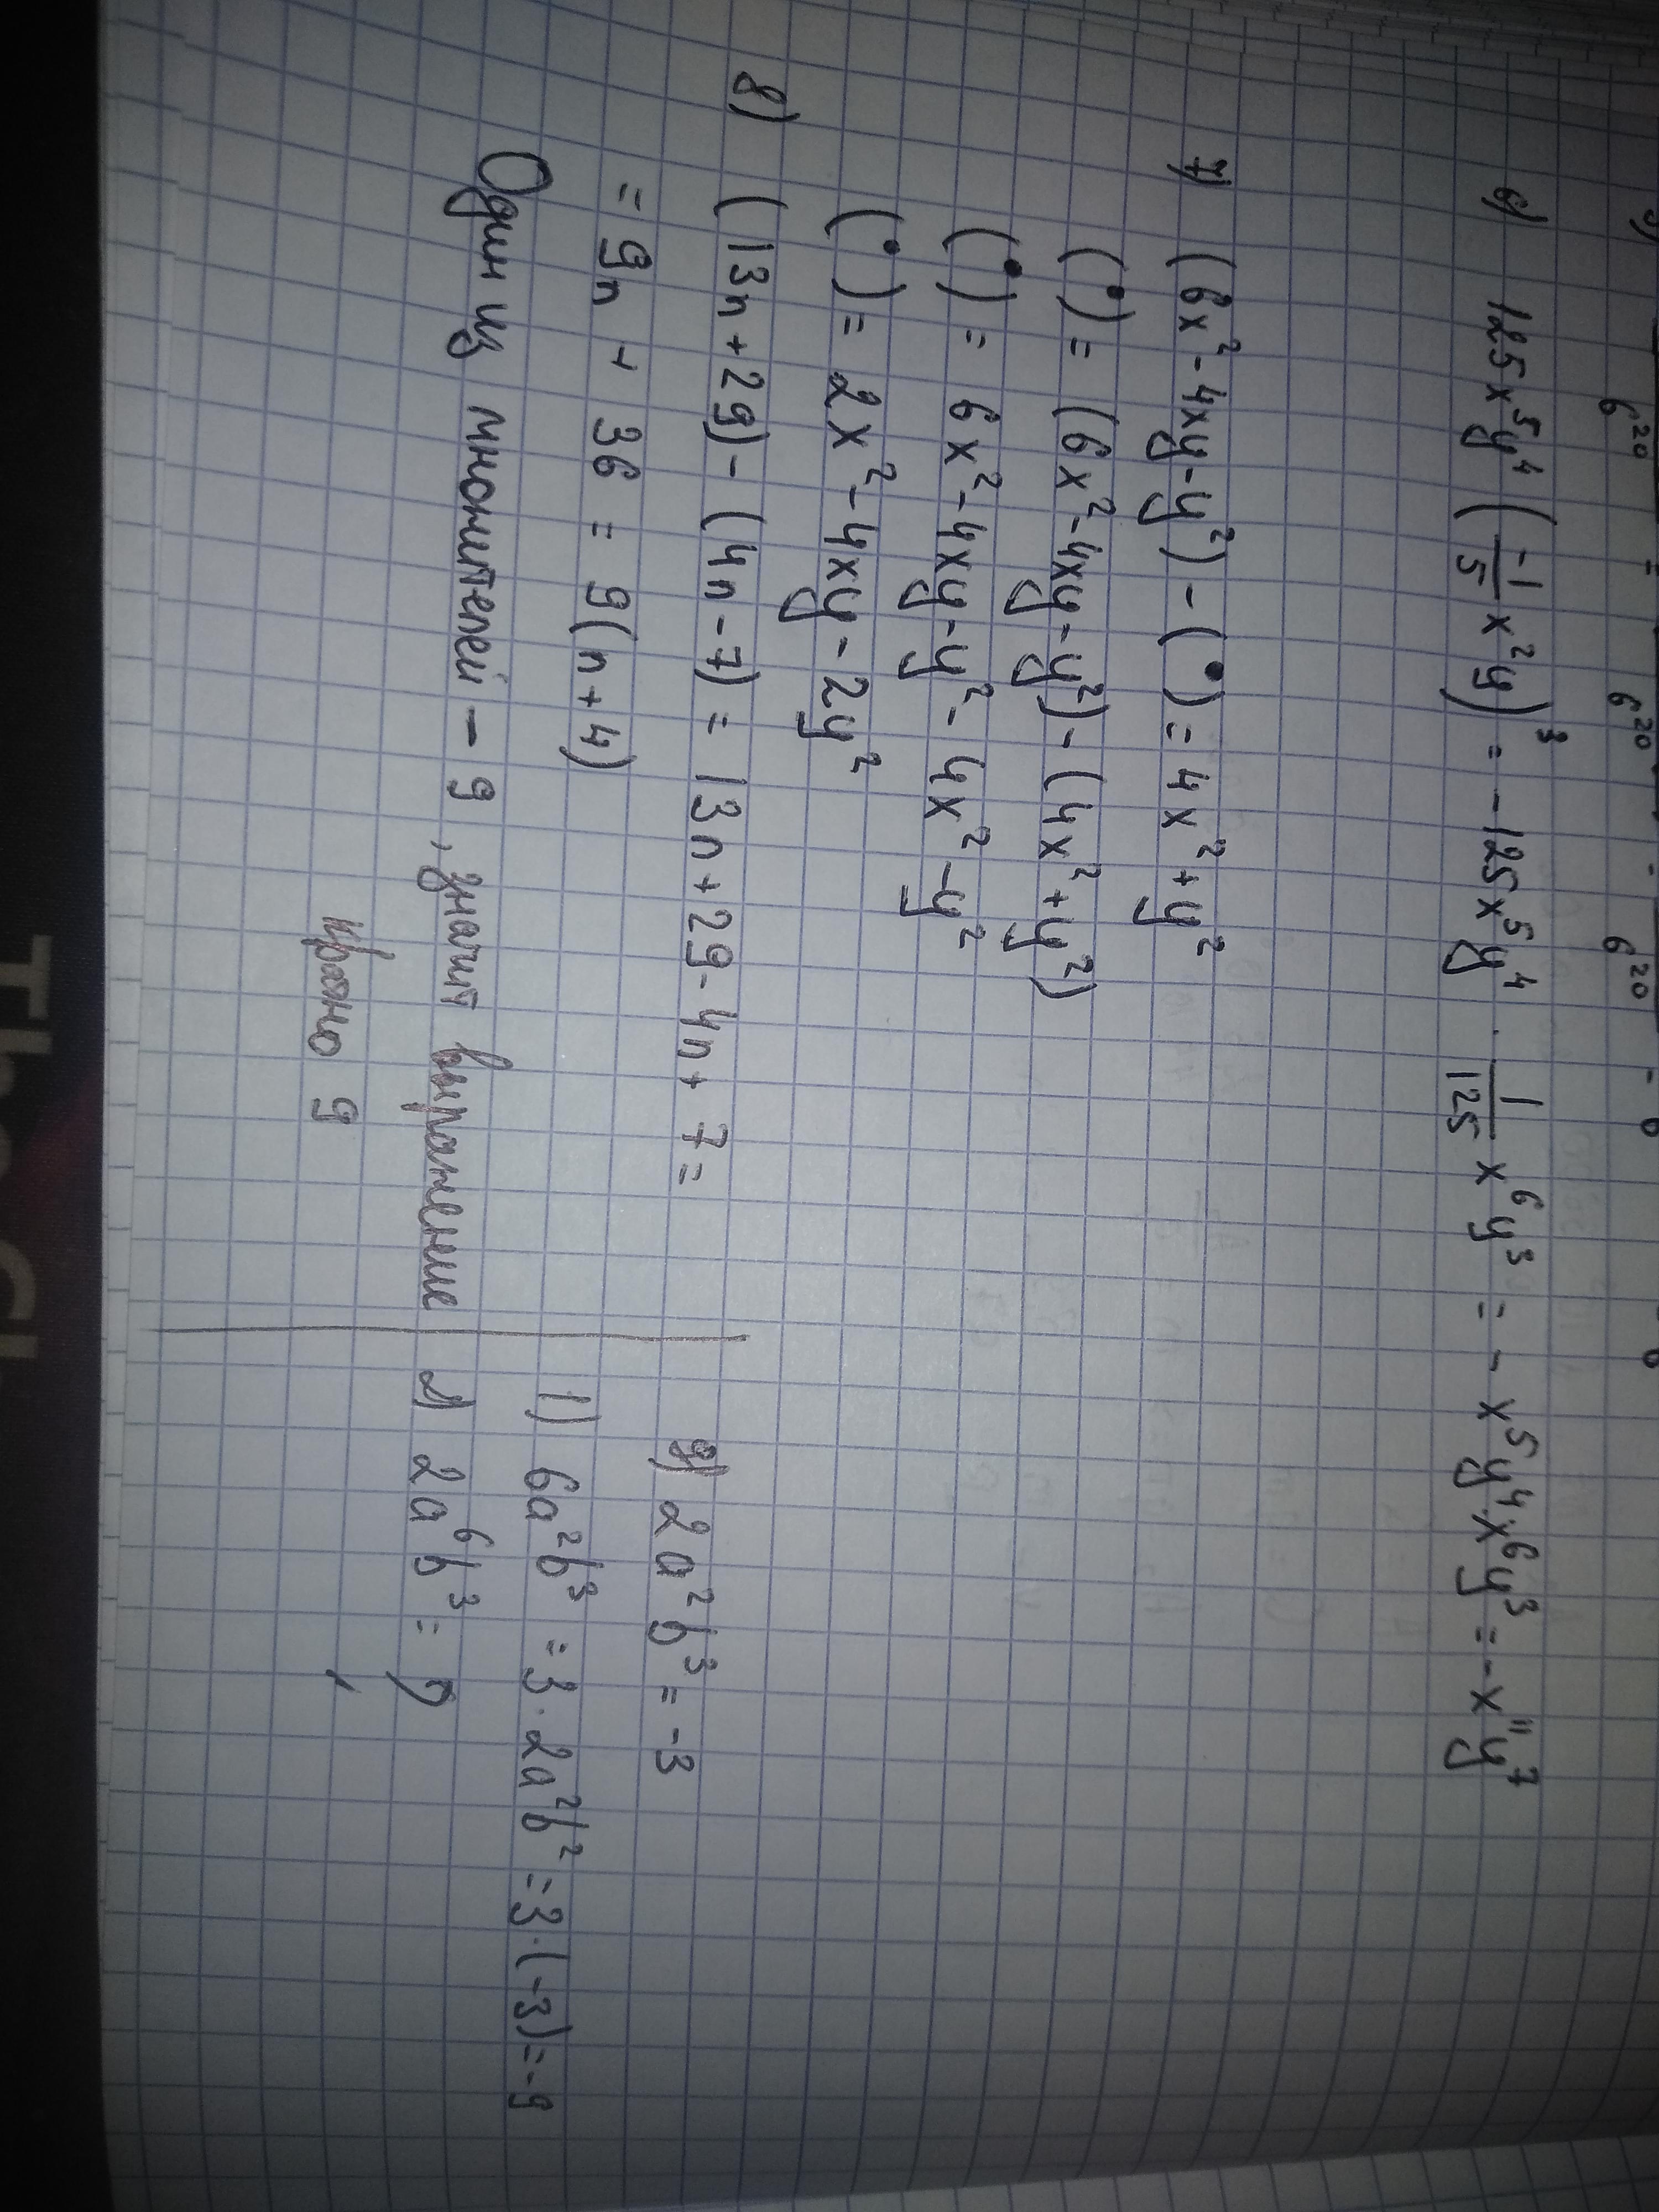 6²⁰ = 6²⁰ - 6²⁰ - 6
6) 125x⁵y⁴(-1/5 x²y)³ = -125x⁵y⁴ · 1/125 x⁶y³ = - x⁵y⁴·x⁶y³ = -x¹¹y⁷
7) (6x²-4xy-y²) - (•) = 4x²+y²
(•) = (6x²-4xy-y²) - (4x²+y²)
(•) = 6x²-4xy-y² - 4x²-y²
(•) = 2x²-4xy-2y²
8) (13n+29) - (4n-7) = 13n+29-4n+7=
= 9n + 36 = 9(n+4)
Один из множителей – 9, значит выражение
кратно 9
9) 2a²b³ = -3
1) 6a²b³ = 3·2a²b² = 3·(-3) = -9
2) 2a⁶b³ = ?
The